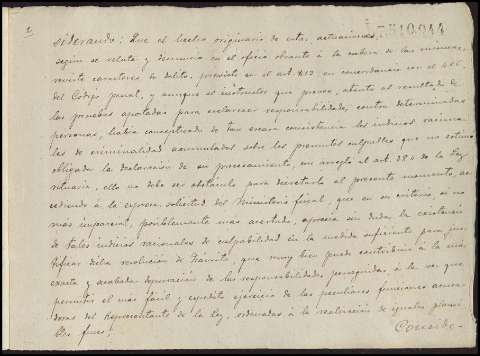 2
7510.944
siderando: Que el hecho originario de estas actuaciones,
según se relata y denuncia en el oficio obrante á la cabeza de las mismas,
reviste caracteres de delito, previsto en el art. 412 en concordancia con el 466
del Código penal, y aunque el instructor que provee, atento al resultado de
las pruebas aportadas para esclarecer responsabilidades contra determinadas
personas, había conceptuado de tan escasa consistencia los indicios raciona-
les de criminalidad acumulados sobre los presuntos culpables que no estimó
obligada la declaración de su procesamiento, con arreglo al art. 384 de la Ley
rituaria, ello no debe ser obstáculo para decretarlo al presente momento, ac-
cediendo á la expresa solicitud del Ministerio fiscal, que en su criterio, si no
más imparcial, posiblemente más acertado, aprecia sin duda la existencia
de tales indicios racionales de culpabilidad en la medida suficiente para jus-
tificar dicha resolución de trámite, que muy bien puede contribuir á la más
exacta y acabada depuración de las responsabilidades perseguidas, á la vez que
permitir el más fácil y expedito ejercicio de las peculiares funciones acusa-
doras del Representante de la Ley, ordenadas á la realización de iguales
fines;